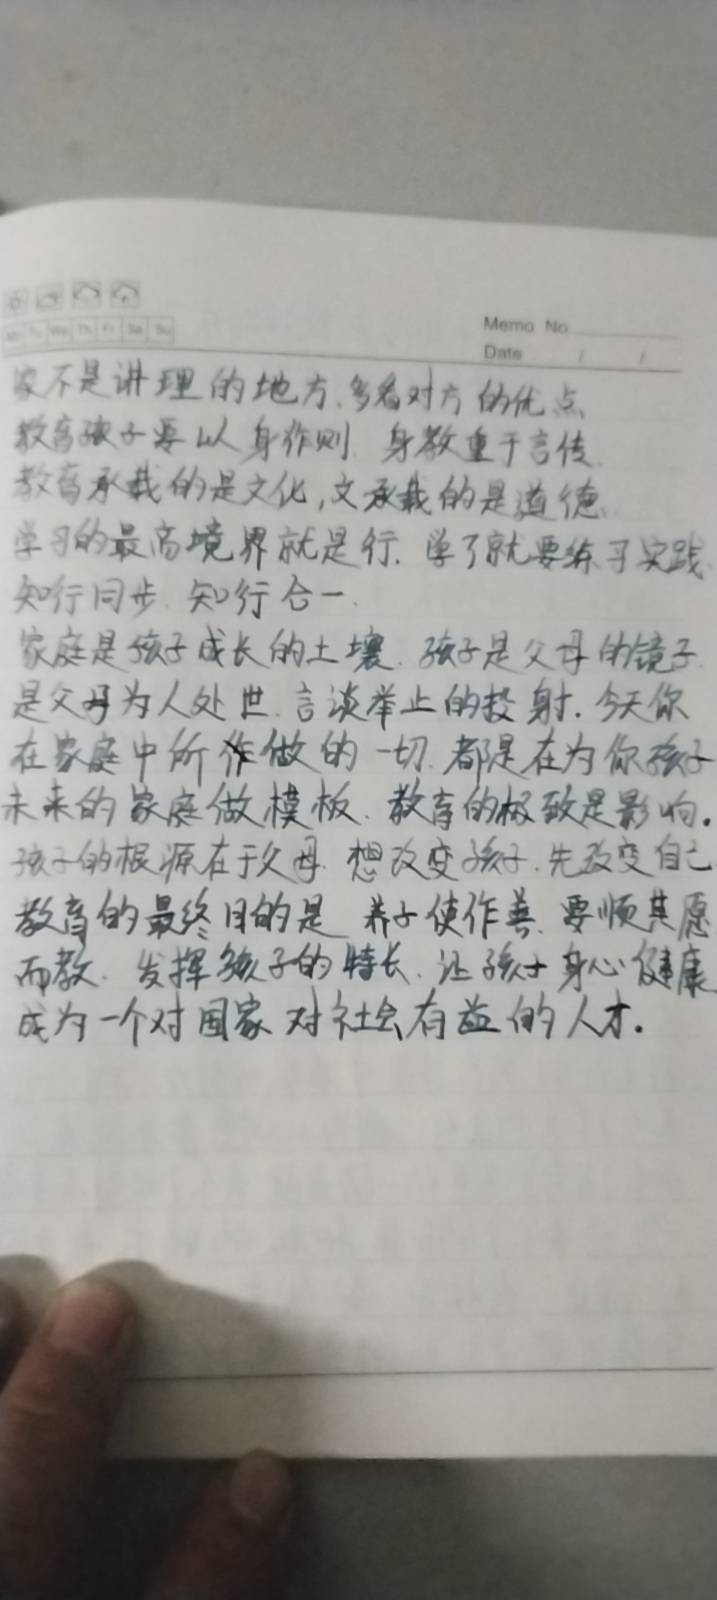 Mo Tu We Th Fr Sa Su
Memo No
Date / /
家不是讲理的地方、多看对方的优点
教育孩子要以身作则 身教重于言传
教育承载的是文化,文承载的是道德
学习的最高境界就是行. 学了就要练习实践
知行同步. 知行合一.
家庭是孩子成长的土壤. 孩子是父母的镜子
是父母为人处世. 言谈举止的投射. 今天你
在家庭中所做的一切. 都是在为你孩子
未来的家庭做模板. 教育的极致是影响.
孩子的根源在于父母. 想改变孩子. 先改变自己
教育的最终目的是 养子使作善. 要顺其愿
而教. 发挥孩子的特长. 让孩子身心健康
成为一个对国家对社会有益的人才.